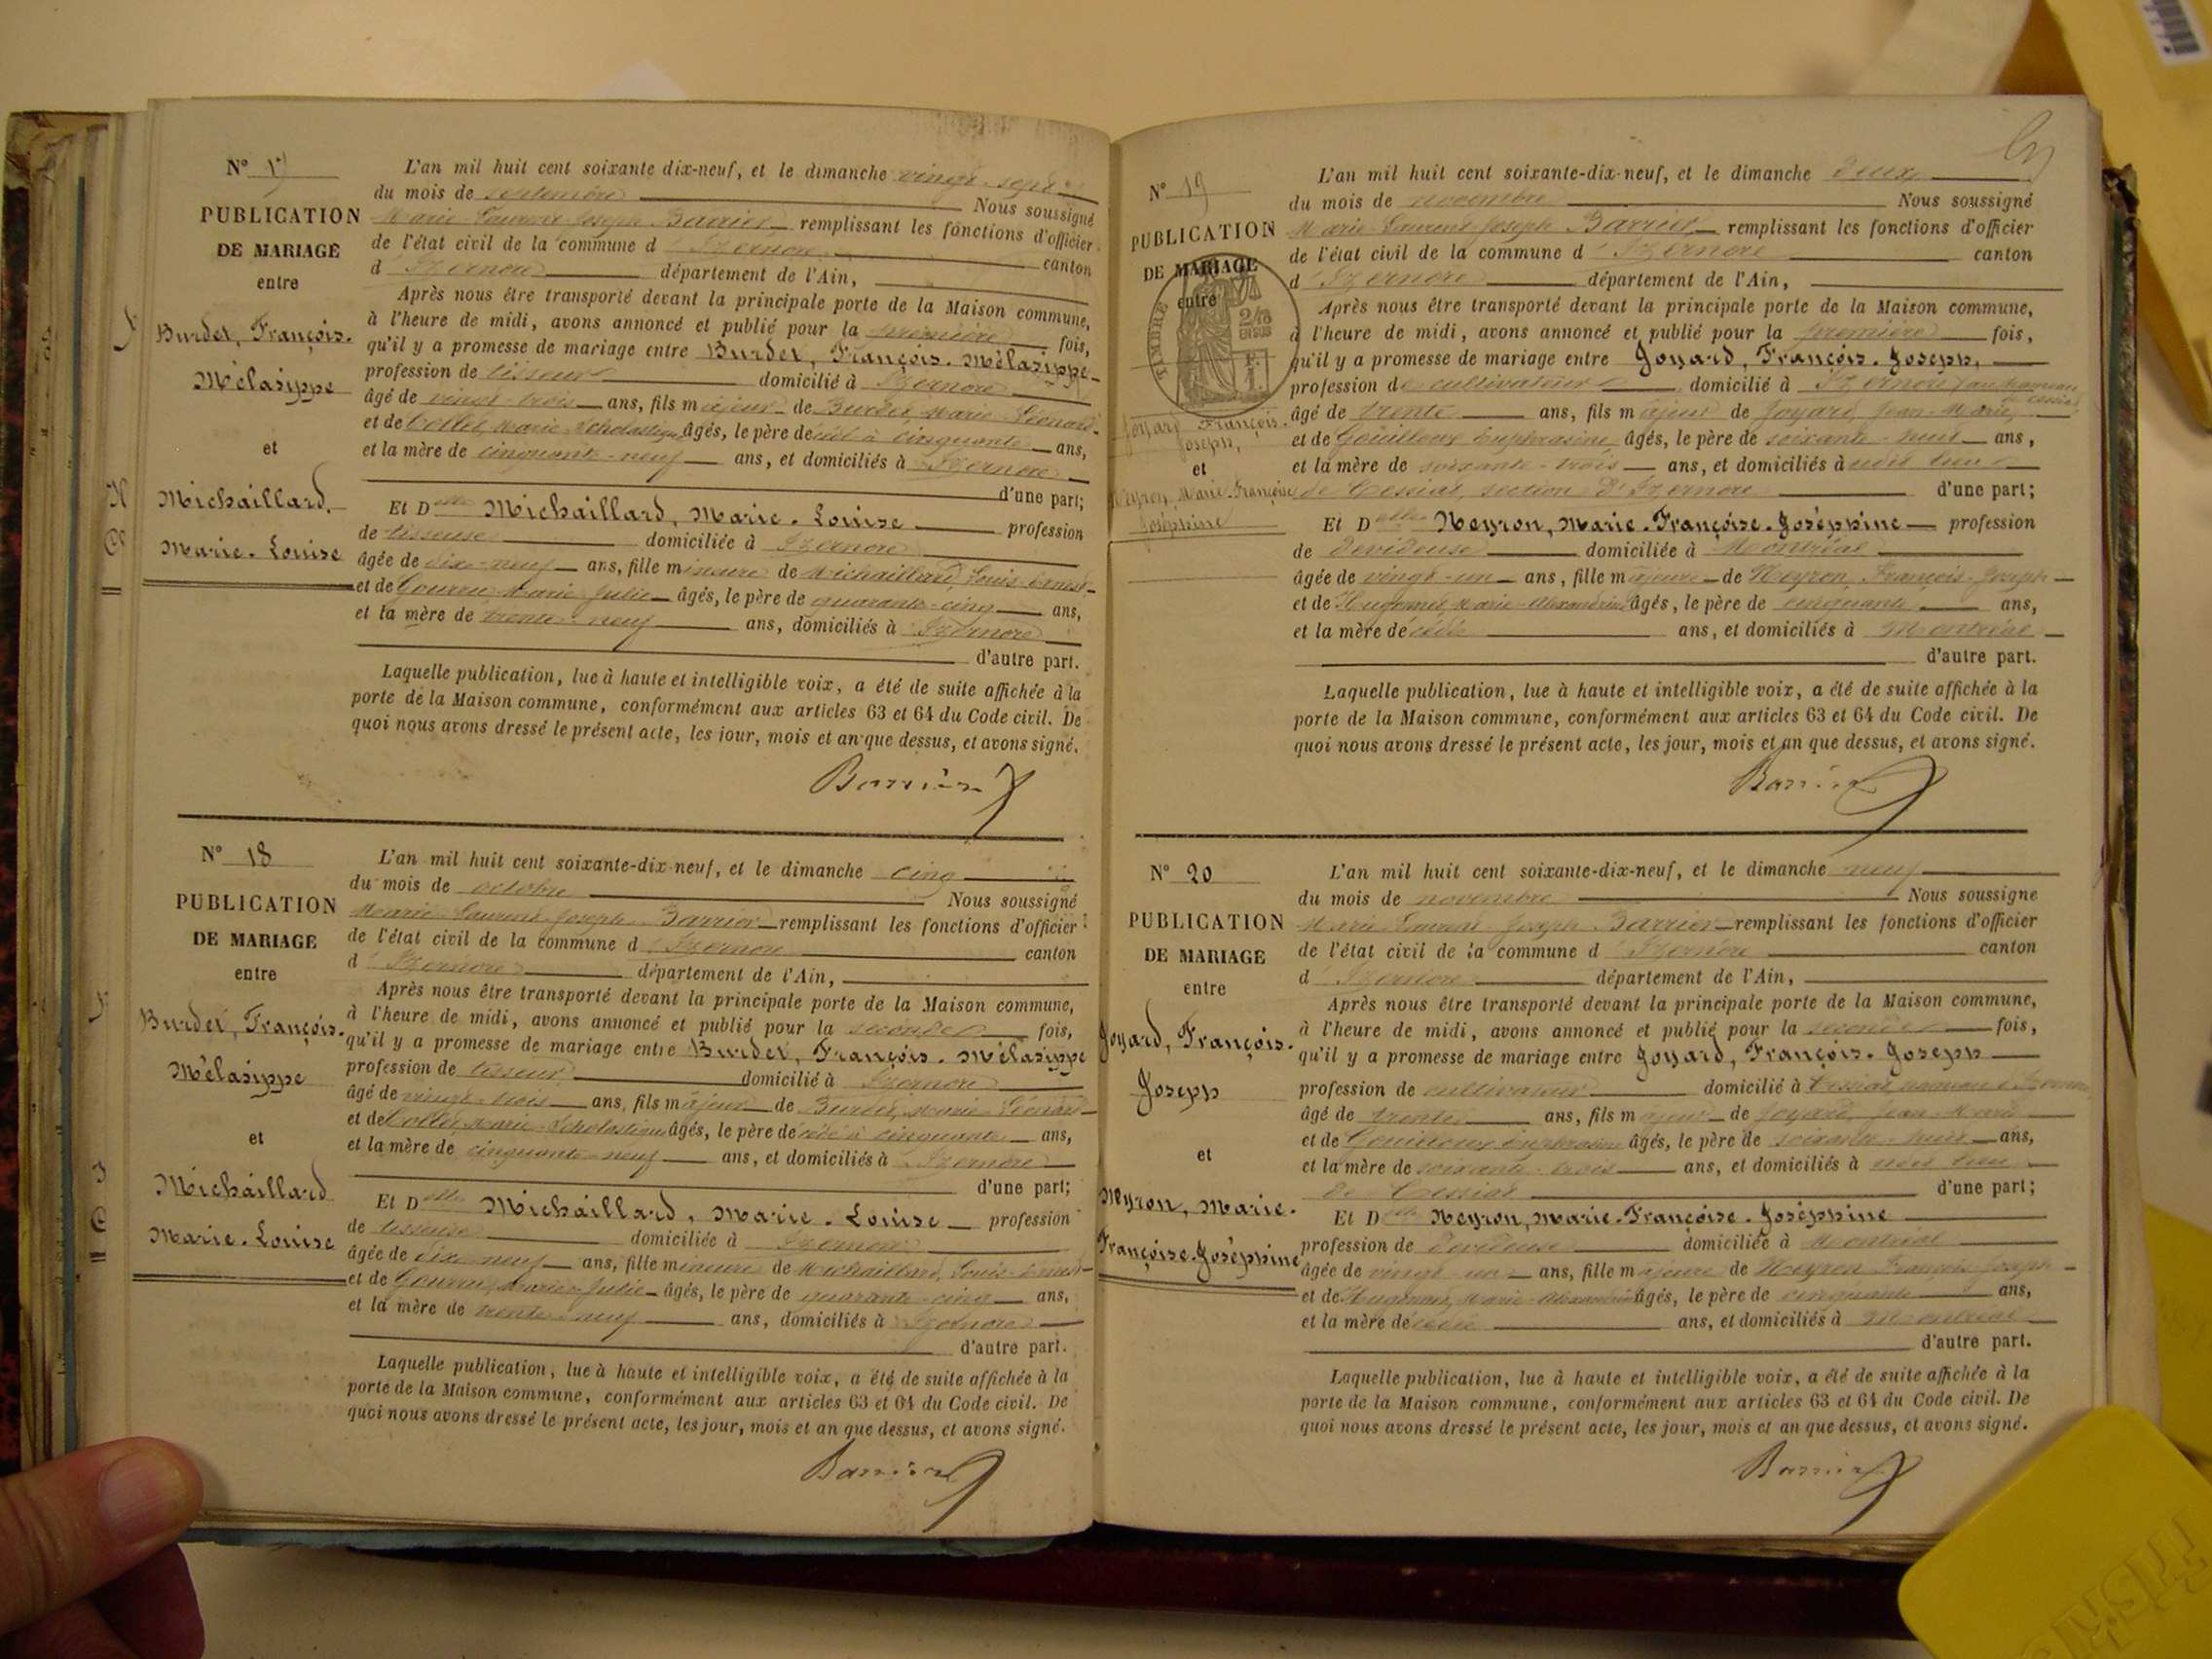 N° 17
PUBLICATION
DE MARIAGE
entre
Burdet, François.
Mélasippe
et
Michaillard,
Marie-Louise
L'an mil huit cent soixante dix-neuf, et le dimanche vingt-sept
du mois de septembre Nous soussigné
Marie-Laurent-Joseph Barrier remplissant les fonctions d'officier
de l'état civil de la commune d'Izernore canton
d'Izernore département de l'Ain,
Après nous être transporté devant la principale porte de la Maison commune,
à l'heure de midi, avons annoncé et publié pour la première fois,
qu'il y a promesse de mariage entre Burdet, François-Mélasippe
profession de tisseur domicilié à Izernore
âgé de vingt-trois ans, fils majeur de Burdet, Marie-Léonard
et de Collet, Marie-Scholastique âgés, le père décédé à cinquante ans,
et la mère de cinquante-neuf ans, et domiciliés à Izernore
d'une part;
Et Delle Michaillard, Marie-Louise profession
de tisseuse domiciliée à Izernore
âgée de dix-neuf ans, fille mineure de Michaillard, Louis-Ernest
et de Gourru Marie-Julie âgés, le père de quarante-cinq ans,
et la mère de trente-neuf ans, domiciliés à Izernore
d'autre part.
Laquelle publication, lue à haute et intelligible voix, a été de suite affichée à la
porte de la Maison commune, conformément aux articles 63 et 64 du Code civil. De
quoi nous avons dressé le présent acte, les jour, mois et an que dessus, et avons signé.
Barrier
N° 18
PUBLICATION
DE MARIAGE
entre
Burdet, François.
Mélasippe
et
Michaillard
Marie-Louise
L'an mil huit cent soixante-dix-neuf, et le dimanche cinq
du mois de octobre Nous soussigné
Marie-Laurent-Joseph Barrier remplissant les fonctions d'officier
de l'état civil de la commune d'Izernore canton
d'Izernore département de l'Ain,
Après nous être transporté devant la principale porte de la Maison commune,
à l'heure de midi, avons annoncé et publié pour la seconde fois,
qu'il y a promesse de mariage entre Burdet, François-Mélasippe
profession de tisseur domicilié à Izernore
âgé de vingt-trois ans, fils majeur de Burdet, Marie-Léonard
et de Collet, Marie-Scholastique âgés, le père décédé à cinquante ans,
et la mère de cinquante-neuf ans, et domiciliés à Izernore
d'une part;
Et Delle Michaillard, Marie-Louise profession
de tisseuse domiciliée à Izernore
âgée de dix-neuf ans, fille mineure de Michaillard, Louis-Ernest
et de Gourru, Marie-Julie âgés, le père de quarante-cinq ans,
et la mère de trente-neuf ans, domiciliés à Izernore
d'autre part.
Laquelle publication, lue à haute et intelligible voix, a été de suite affichée à la
porte de la Maison commune, conformément aux articles 63 et 64 du Code civil. De
quoi nous avons dressé le présent acte, les jour, mois et an que dessus, et avons signé.
Barrier
N° 19
PUBLICATION
DE MARIAGE
entre
TIMBRE
Joyard François.
Joseph,
et
Neyron, Marie-Françoise
Joséphine
L'an mil huit cent soixante-dix-neuf, et le dimanche deux
du mois de novembre Nous soussigné
Marie-Laurent-Joseph Barrier remplissant les fonctions d'officier
de l'état civil de la commune d'Izernore canton
d'Izernore département de l'Ain,
Après nous être transporté devant la principale porte de la Maison commune,
à l'heure de midi, avons annoncé et publié pour la première fois,
qu'il y a promesse de mariage entre Joyard, François-Joseph,
profession de cultivateur domicilié à Izernore
âgé de trente ans, fils majeur de Joyard, Jean-Marie,
et de Gouilloux Euphrasine âgés, le père de soixante-huit ans,
et la mère de soixante-trois ans, et domiciliés à
de Cessiat, section d'Izernore d'une part;
Et Delle Neyron, Marie-Françoise-Joséphine profession
de dévideuse domiciliée à Montréal
âgée de vingt-un ans, fille majeure de Neyron, François-Joseph
et de Hugonnet, Marie-Alexandrine âgés, le père de cinquante ans,
et la mère décédée ans, et domiciliés à Montréal
d'autre part.
Laquelle publication, lue à haute et intelligible voix, a été de suite affichée à la
porte de la Maison commune, conformément aux articles 63 et 64 du Code civil. De
quoi nous avons dressé le présent acte, les jour, mois et an que dessus, et avons signé.
Barrier
N° 20
PUBLICATION
DE MARIAGE
entre
Joyard, François.
Joseph
et
Neyron, Marie.
Françoise-Joséphine
L'an mil huit cent soixante-dix-neuf, et le dimanche neuf
du mois de novembre Nous soussigné
Marie-Laurent-Joseph Barrier remplissant les fonctions d'officier
de l'état civil de la commune d'Izernore canton
d'Izernore département de l'Ain,
Après nous être transporté devant la principale porte de la Maison commune,
à l'heure de midi, avons annoncé et publié pour la seconde fois,
qu'il y a promesse de mariage entre Joyard, François-Joseph
profession de cultivateur domicilié à Cessiat hameau d'Izernore
âgé de trente ans, fils majeur de Joyard, Jean-Marie
et de Gouilloux Euphrasine âgés, le père de soixante-huit ans,
et la mère de soixante-trois ans, et domiciliés à
de Cessiat d'une part;
Et Delle Neyron, Marie-Françoise-Joséphine
profession de dévideuse domiciliée à Montréal
âgée de vingt-un ans, fille majeure de Neyron François-Joseph
et de Hugonnet, Marie-Alexandrine âgés, le père de cinquante ans,
et la mère décédée ans, et domiciliés à Montréal
d'autre part.
Laquelle publication, lue à haute et intelligible voix, a été de suite affichée à la
porte de la Maison commune, conformément aux articles 63 et 64 du Code civil. De
quoi nous avons dressé le présent acte, les jour, mois et an que dessus, et avons signé.
Barrier